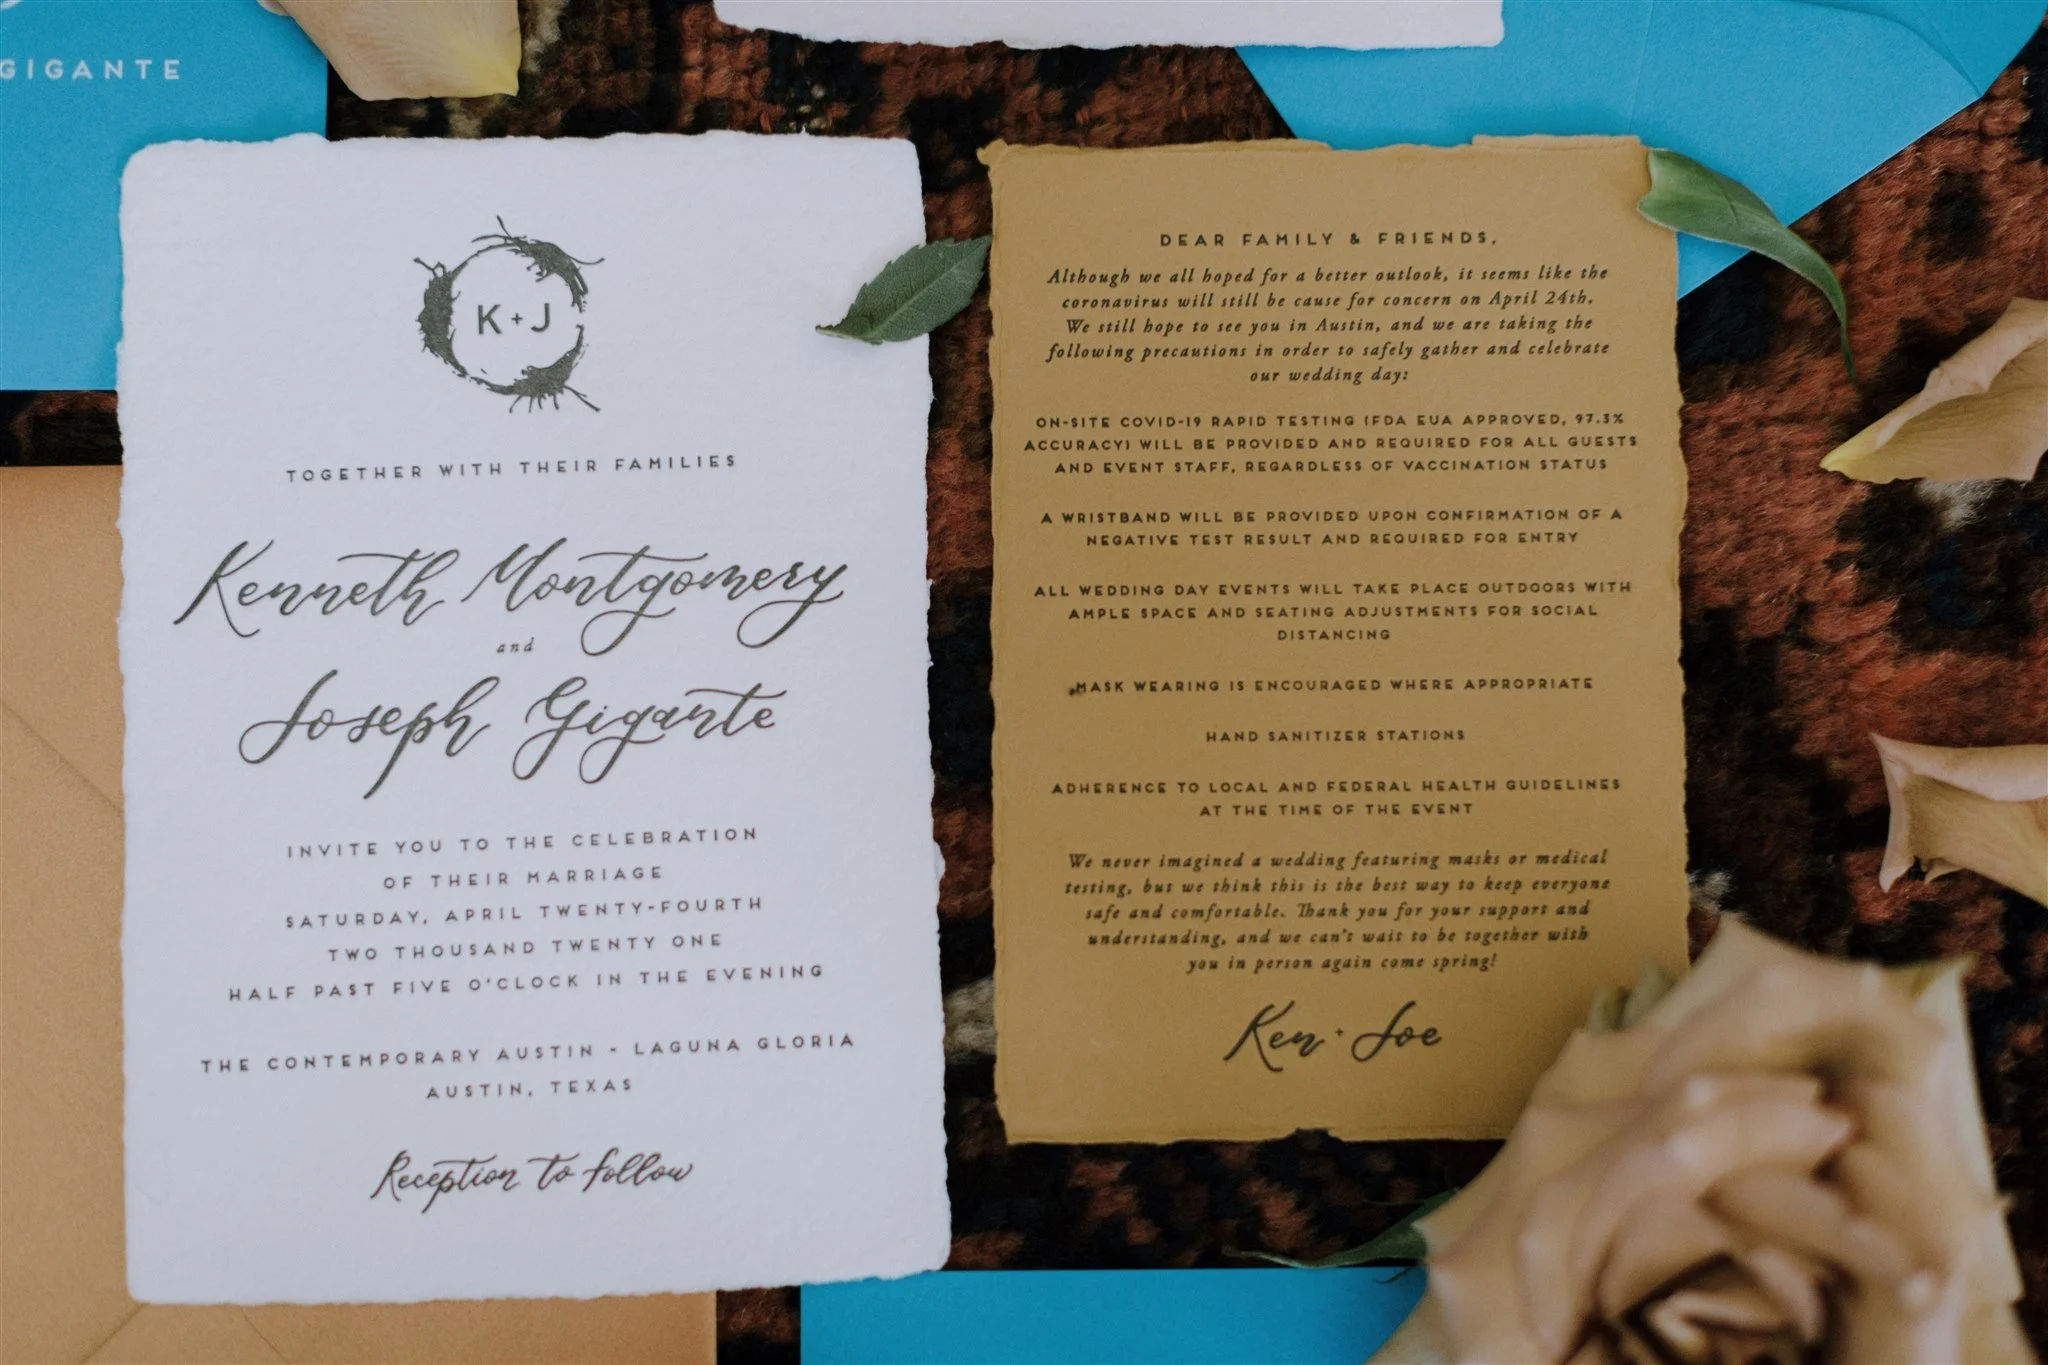 GIGANTE
K+J
TOGETHER WITH THEIR FAMILIES
Kenneth Montgomery
and
Joseph Gigante
INVITE YOU TO THE CELEBRATION
OF THEIR MARRIAGE
SATURDAY, APRIL TWENTY-FOURTH
TWO THOUSAND TWENTY ONE
HALF PAST FIVE O'CLOCK IN THE EVENING
THE CONTEMPORARY AUSTIN - LAGUNA GLORIA
AUSTIN, TEXAS
Reception to follow
DEAR FAMILY & FRIENDS,
Although we all hoped for a better outlook, it seems like the
coronavirus will still be cause for concern on April 24th.
We still hope to see you in Austin, and we are taking the
following precautions in order to safely gather and celebrate
our wedding day:
ON-SITE COVID-19 RAPID TESTING (FDA EUA APPROVED, 97.3%
ACCURACY) WILL BE PROVIDED AND REQUIRED FOR ALL GUESTS
AND EVENT STAFF, REGARDLESS OF VACCINATION STATUS
A WRISTBAND WILL BE PROVIDED UPON CONFIRMATION OF A
NEGATIVE TEST RESULT AND REQUIRED FOR ENTRY
ALL WEDDING DAY EVENTS WILL TAKE PLACE OUTDOORS WITH
AMPLE SPACE AND SEATING ADJUSTMENTS FOR SOCIAL
DISTANCING
MASK WEARING IS ENCOURAGED WHERE APPROPRIATE
HAND SANITIZER STATIONS
ADHERENCE TO LOCAL AND FEDERAL HEALTH GUIDELINES
AT THE TIME OF THE EVENT
We never imagined a wedding featuring masks or medical
testing, but we think this is the best way to keep everyone
safe and comfortable. Thank you for your support and
understanding, and we can't wait to be together with
you in person again come spring!
Ken + Joe